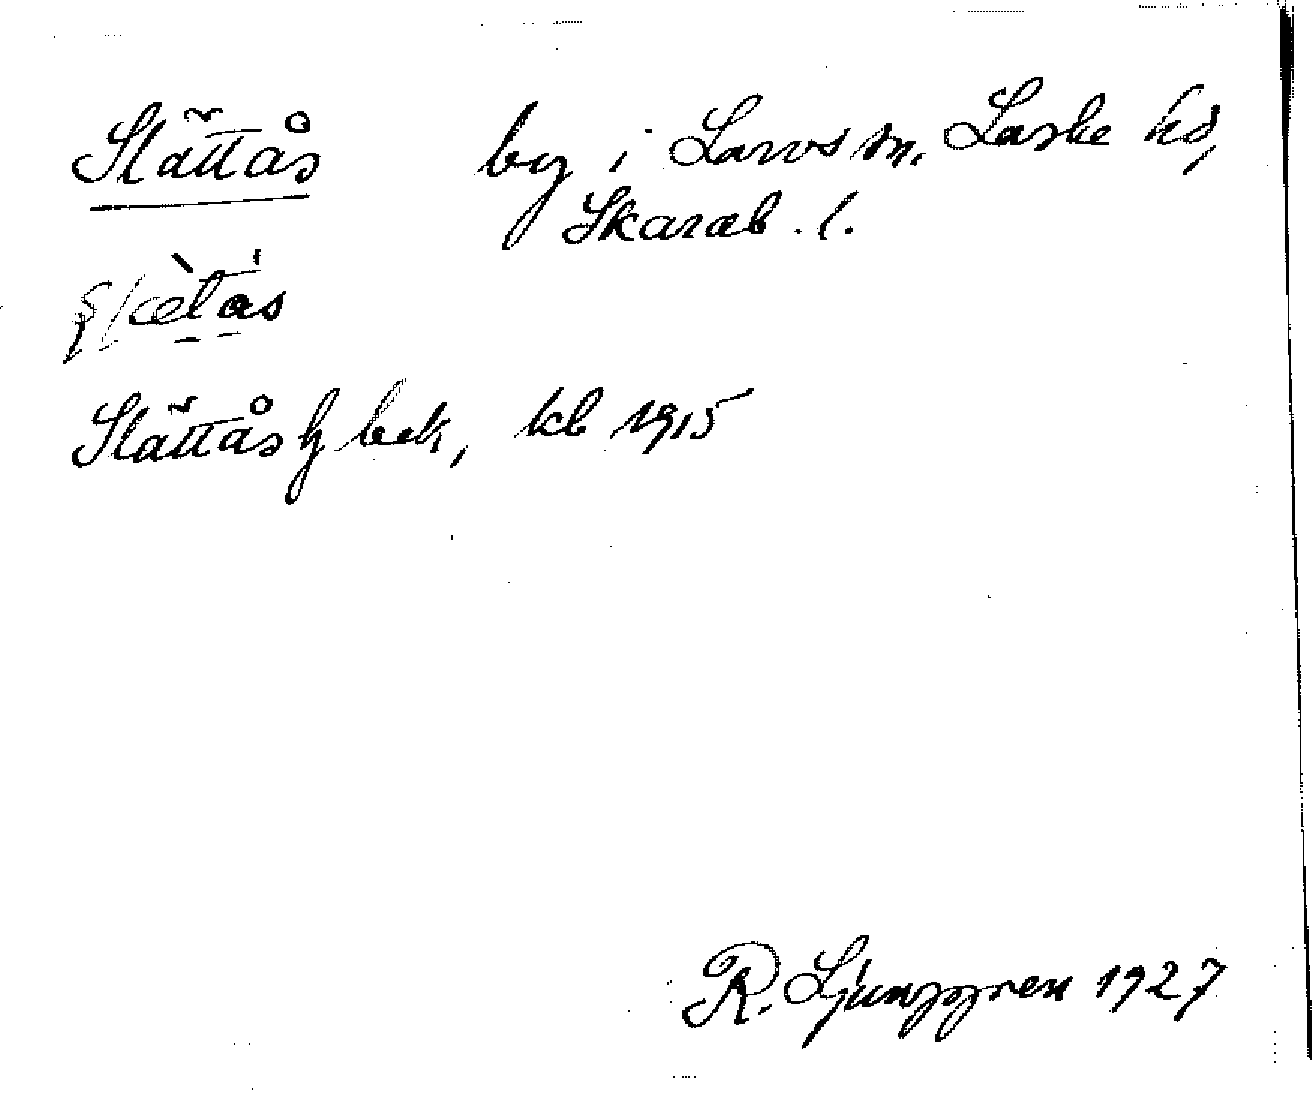 Slättås by i Larvs sn. Laske hd,
Skarab. l.
Slättås bek, kb 1915
R. Ljunggren 1927